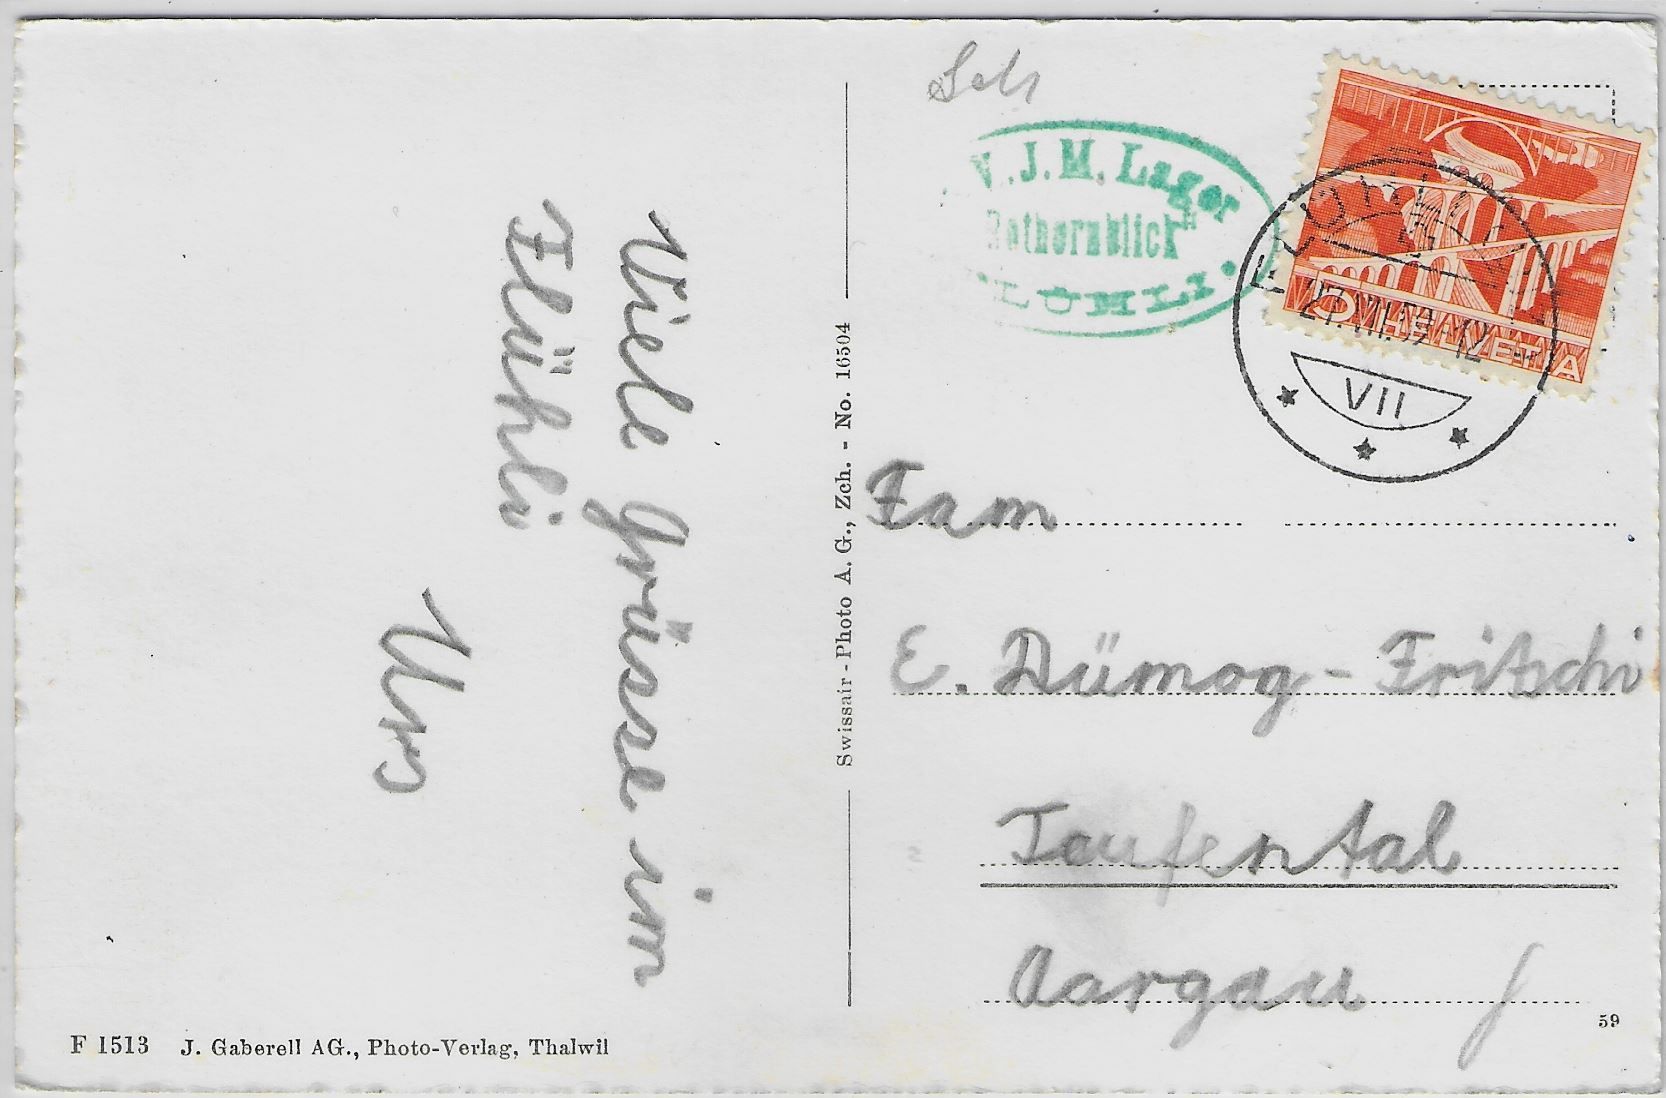 Viele Grüsse im
Flühli
Urs
F 1513 J. Gaberell AG., Photo-Verlag, Thalwil
Swissair-Photo A. G., Zch. - No. 16504
V. J. M. Lager
Rothornblick"
LÜHLI
HELVETIA
5
VII
Fam
E. Dümog-Fritschi
Teufental
Aargau
59